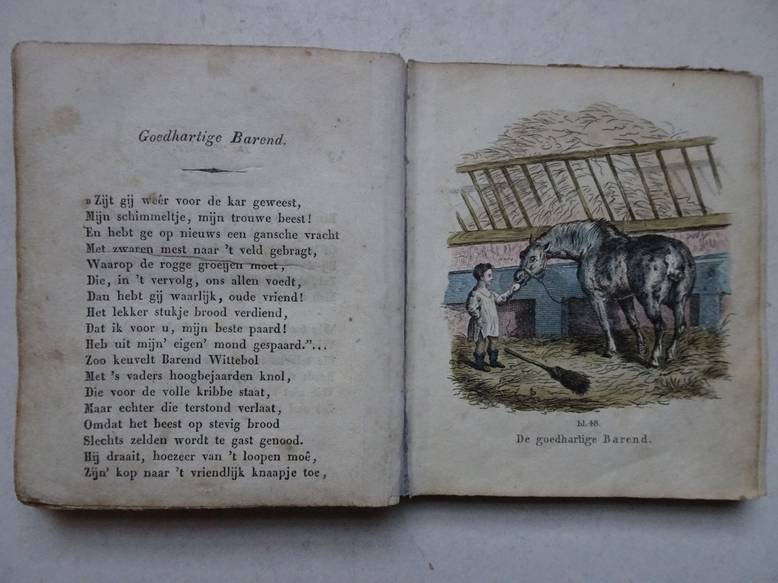 Goedhartige Barend.
»Zijt gij weêr voor de kar geweest,
Mijn schimmeltje, mijn trouwe beest!
En hebt ge op nieuws een gansche vracht
Met zwaren mest naar 't veld gebragt,
Waarop de rogge groeijen moet,
Die, in 't vervolg, ons allen voedt,
Dan hebt gij waarlijk, oude vriend!
Het lekker stukje brood verdiend,
Dat ik voor u, mijn beste paard!
Heb uit mijn' eigen' mond gespaard."...
Zoo keuvelt Barend Wittebol
Met 's vaders hoogbejaarden knol,
Die voor de volle kribbe staat,
Maar echter die terstond verlaat,
Omdat het beest op stevig brood
Slechts zelden wordt te gast genood.
Hij draait, hoezeer van 't loopen moê,
Zijn' kop naar 't vriendlijk knaapje toe,
bl. 48.
De goedhartige Barend.